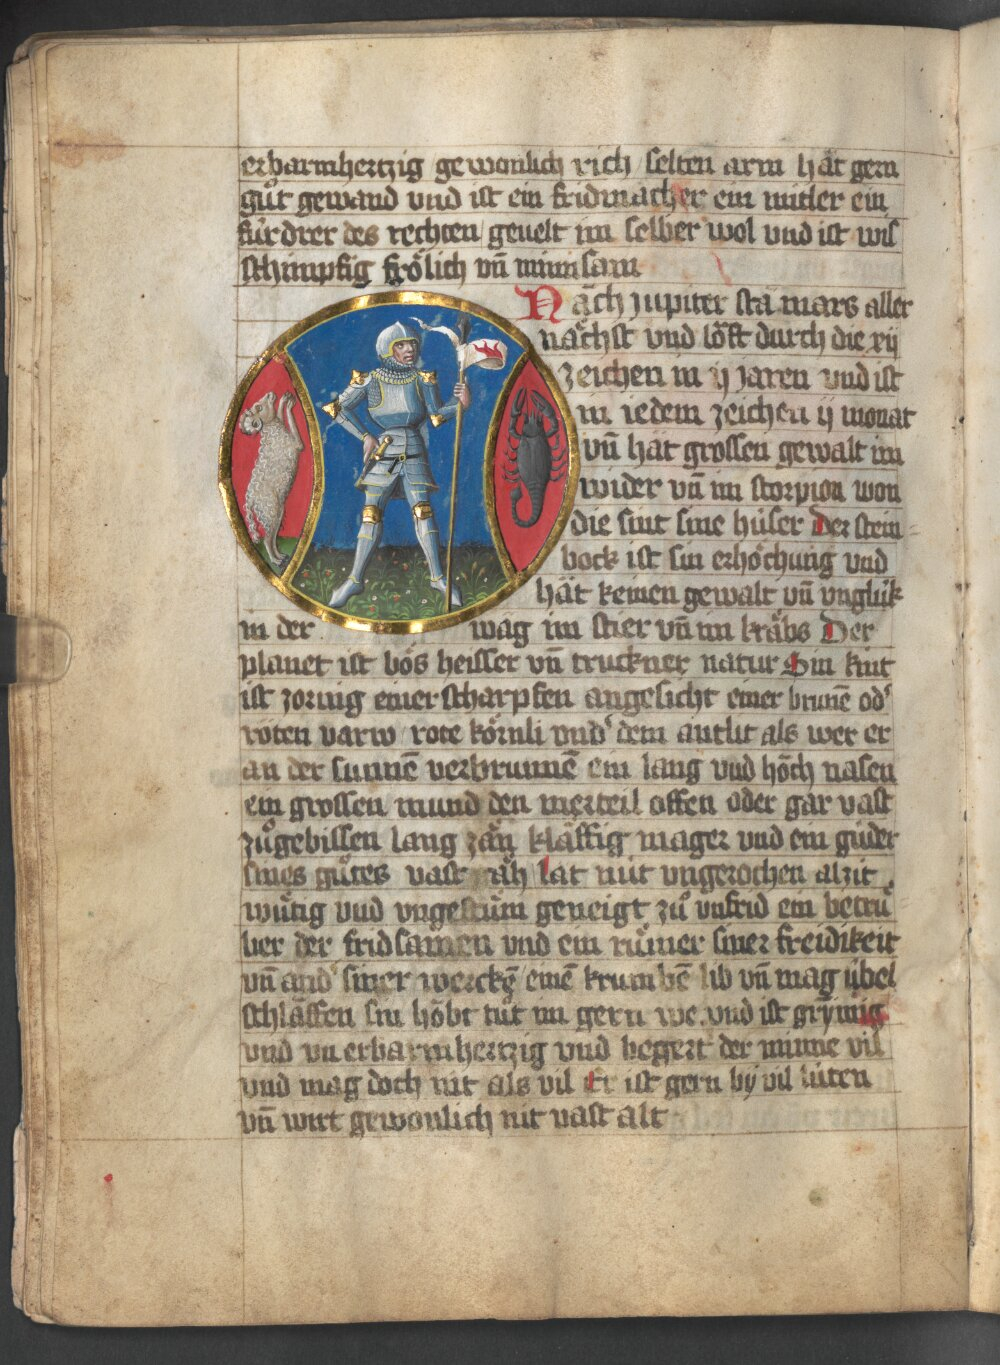 erbarmhertzig gewonlich rich / selten arm hǎt gern
gůt gewand vnd ist ein fridmacher ein mitler ein
fúrdrer des rechten / geuelt im selber wol vnd ist wis
schimpfig frölich vn̄ minnsam
Nǎch Jupiter stǎ mars aller
nǎchst vnd löft durch die xij
zeichen in ij jaren vnd ist
in iedem zeichen ij monat
vn̄ hǎt grossen gewalt im
wider vn̄ im scorpion won
die sint sine húser Der stein
bock ist sin erhöchung vnd
hǎt keinen gewalt vn̄ vnglúk
in der wǎg im stier vn̄ im krǎbs Der
planet ist bös heisser vn̄ truckner natur Sin kint
ist zornig einer scharpfen angesicht einer brunē od᾽
röten varw / rote körnli vnd᾽ dem antlit als wer er
an der sunnē verbrunnē ein lang vnd hǒch nasen
ein grossen mund den merteil offen oder gar vast
zůgebissen lang zän klǎffig mager vnd ein gúder
sines gůtes vast räh lat nút vngerochen alzit
wůtig vnd vngestům geneigt zů vnfrid ein betrů
ber der fridsamen vnd ein růmer siner freidikeit
vn̄ and᾽ siner werckē / einē krumbē lib vn̄ mag úbel
schlǎffen sin höbt tůt im gern we vnd ist grymig
vnd vnerbarmhertzig vnd begert der minne vil
vnd mag doch nit als vil Er ist gern by vil lúten
vn̄ wirt gewonlich nit vast alt